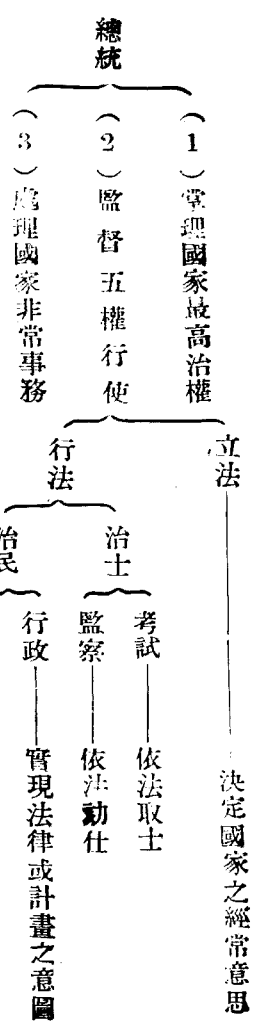 總統
（1）掌理國家最高治權
（2）監督五權行使
（3）處理國家非常事務
立法
決定國家之經常意思
行法
治士
考試
依法取士
監察
依法劾仕
治民
行政
實現法律或計畫之意圖